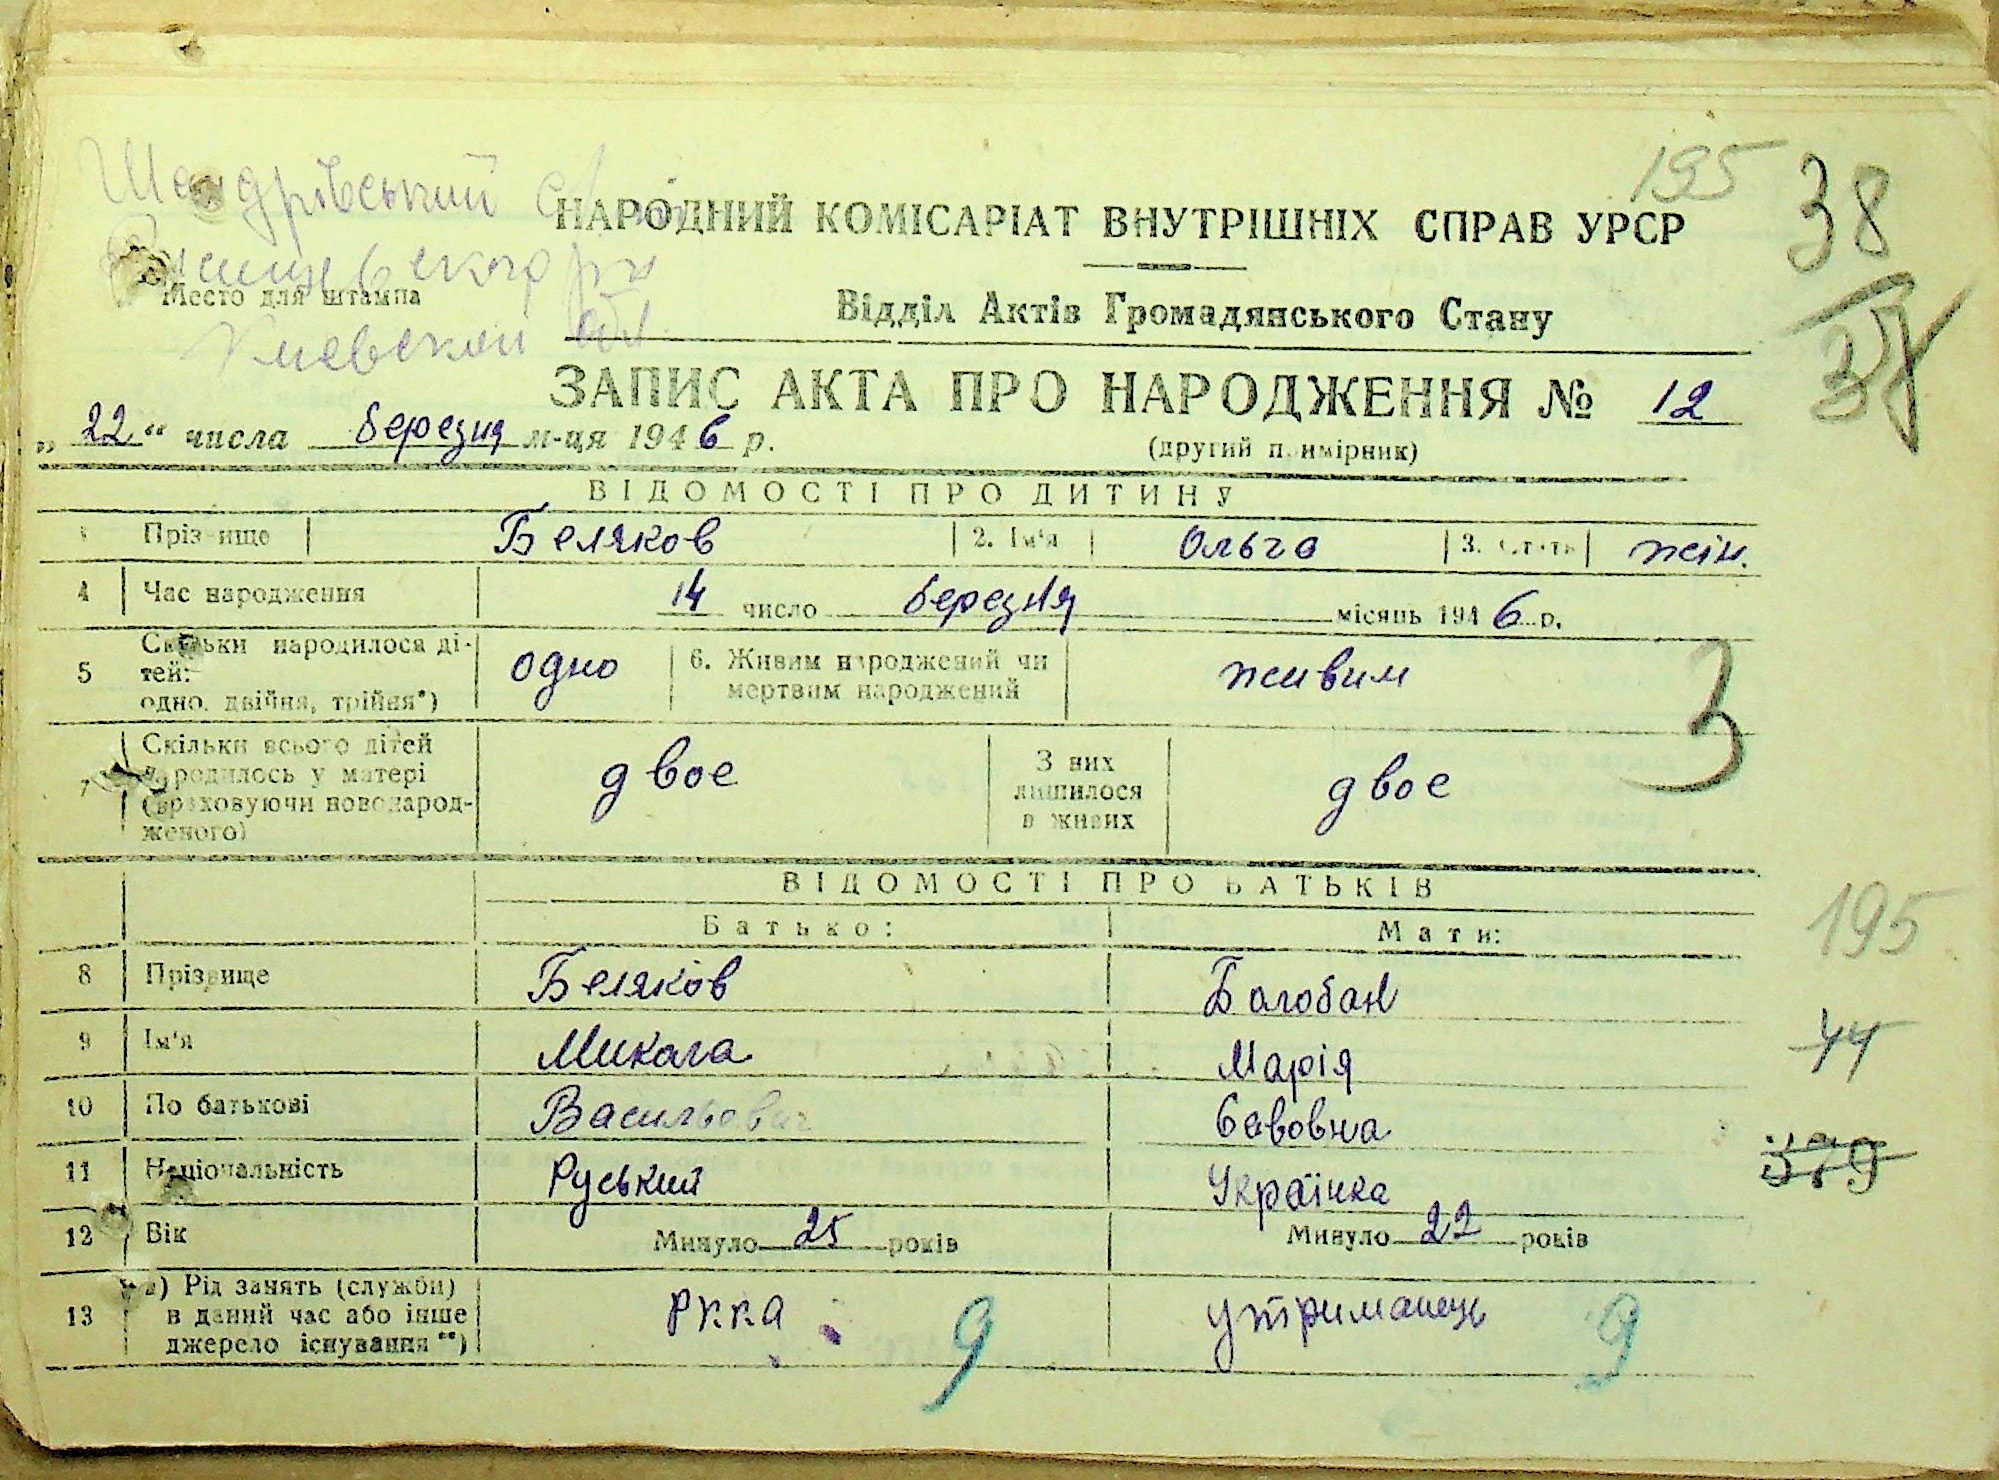 195
38
Шандрівський
НАРОДНИЙ КОМІСАРІАТ ВНУТРІШНІХ СПРАВ УРСР
Место для штампа
Відділ Актів Громадянського Стану
Киевской обл
37
ЗАПИС АКТА ПРО НАРОДЖЕННЯ № 12
„22“ числа березня м-ця 1946 р.
(другий примірник)
ВІДОМОСТІ ПРО ДИТИНУ
Прізвище Беляков 2. Ім'я Ольга 3. Стать жін.
4 Час народження 14 число березня місяць 1946 р.
5 Скільки народилося ді-
тей:
одно, двійня, трійня*) одно 6. Живим народжений чи
мертвим народжений живим
3
7 Скільки всього дітей
народилось у матері
(враховуючи новонарод-
женого) двое З них
лишилося
в живих двое
ВІДОМОСТІ ПРО БАТЬКІВ
Батько: Мати:
195
8 Прізвище Беляков Балобан
9 Ім'я Микола Марія
44
10 По батькові Васильович Савовна
379
11 Національність Руський Українка
12 Вік Минуло 25 років Минуло 22 років
13 а) Рід занять (служби)
в даний час або інше
джерело існування**) РККА 9 утриманець 9